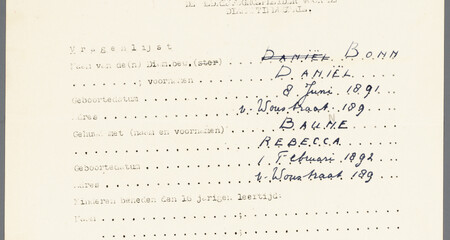 Vragenlijst
Naam van de(n) Dienbau.(ster) DANIËL BONN
" " ; voornamen DANIËL
Geboortedatum 8 Juni 1891
Adres v. Woustraat 189
Gehuwd met (naam en voornamen) BAUNE
REBECCA
Geboortedatum 1 Februari 1892
Adres v. Woustraat 189
Kinderen beneden den 16 jarigen leeftijd:
Naam